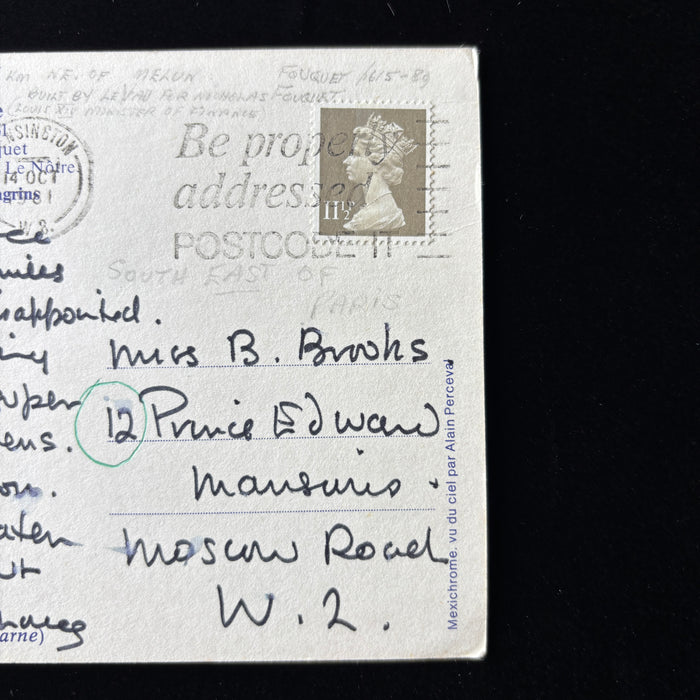 KM NE. OF MELUN. FOUQUET 1615-89
BUILT BY LE VAU FOR NICHOLAS FOUQUET
(LOUIS XIV MINISTER OF FINANCE
NSINGTON
14 OCT
W.8.
quet
Le Nôtre
agrins
Be properly
addressed
POSTCODE IT
11½P
SOUTH EAST OF
PARIS
appointed.
Miss B. Brooks
12 Prince Edward
Mansions.
Moscow Road
W.2.
uper
ens.
on.
aten
arne)
Mexichrome. vu du ciel par Alain Perceval